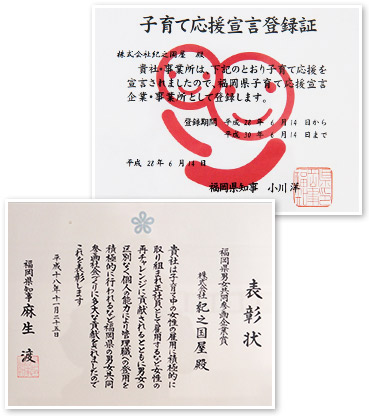 子育て応援宣言登録証
株式会社紀之国屋 殿
貴社・事業所は、下記のとおり子育て応援を
宣言されましたので、福岡県子育て応援宣言
企業・事業所として登録します。
登録期間 平成28年 6月14日から
平成30年 6月14日まで
平成 28年 6月14日
福岡県知事 小川 洋
表彰状
福岡県男女共同参画企業賞
株式会社 紀之国屋 殿
貴社は子育て中の女性の雇用に積極的に
取り組まれ正社員として雇用するなど女性の
再チャレンジに貢献されるとともに男女の
区別なく個人の能力により管理職への登用を
積極的に行われるなど福岡県の男女共同
参画社会づくりに多大な貢献をされましたので
これを表彰します
平成十八年十一月二十五日
福岡県知事 麻生 渡